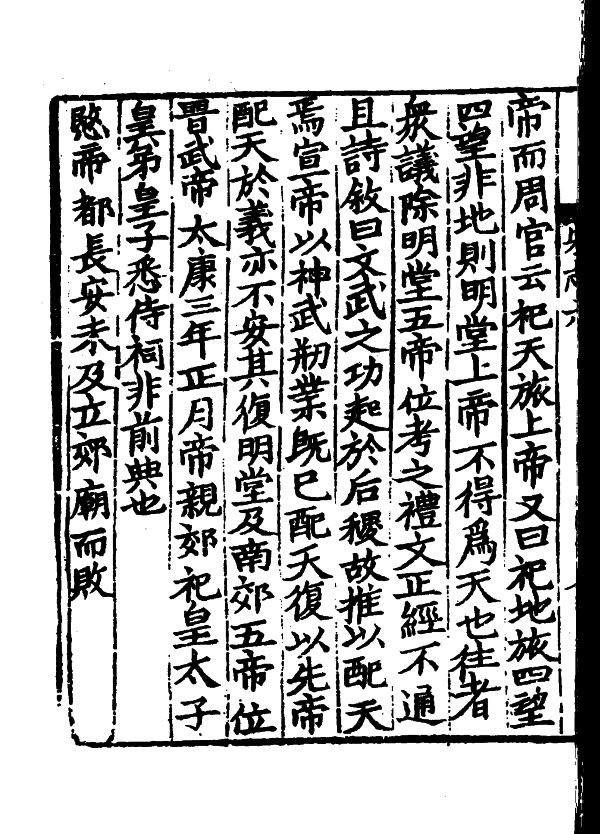 帝而周官云祀天旅上帝又曰祀地旅四望
四望非地則明堂上帝不得爲天也往者
衆議除明堂五帝位考之禮文正經不通
且詩敘曰文武之功起於后稷故推以配天
焉宣帝以神武刱業旣已配天復以先帝
配天於義亦不安其復明堂及南郊五帝位
晉武帝太康三年正月帝親郊祀皇太子
皇弟皇子悉侍祠非前典也
愍帝都長安未及立郊廟而敗